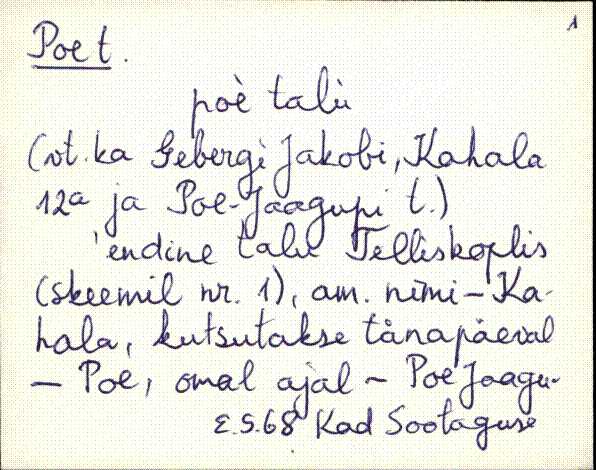 1
Poe t.
poè talù
(vt. ka Gebergi Jakobi, Kahala
12a ja Poe-Jaagupi t.)
'endine talu Telliskoplis
(skeemil nr. 1), am. nimi - Ka-
hala, kutsutakse tänapäeval
- Poe, omal ajal - Poe Jaagu-
E.S.68 Kad Sootaguse